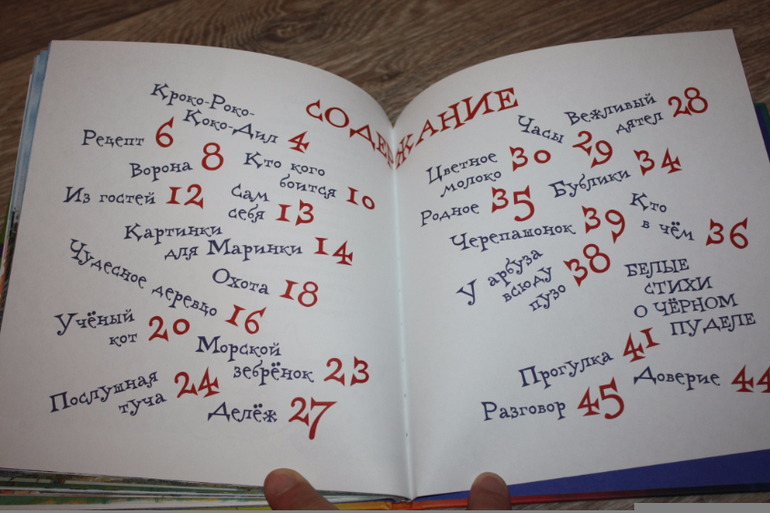 СОДЕРЖАНИЕ
Кроко-Роко-
Коко-Дил 4
Рецепт 6
Ворона 8
Кто кого
боится 10
Из гостей 12
Сам
себя 13
Картинки
для Маринки 14
Чудесное деревцо 16
Охота 18
Учёный
кот 20
Морской
зебрёнок 23
Послушная
туча 24
Делёж 27
Вежливый
дятел 28
Часы 29
Цветное
молоко 30
Бублики 34
Родное 35
Кто
в чём 36
Черепашонок 39
У арбуза
всюду
пузо 38
БЕЛЫЕ
СТИХИ
О ЧЁРНОМ
ПУДЕЛЕ
Прогулка 41
Доверие 44
Разговор 45